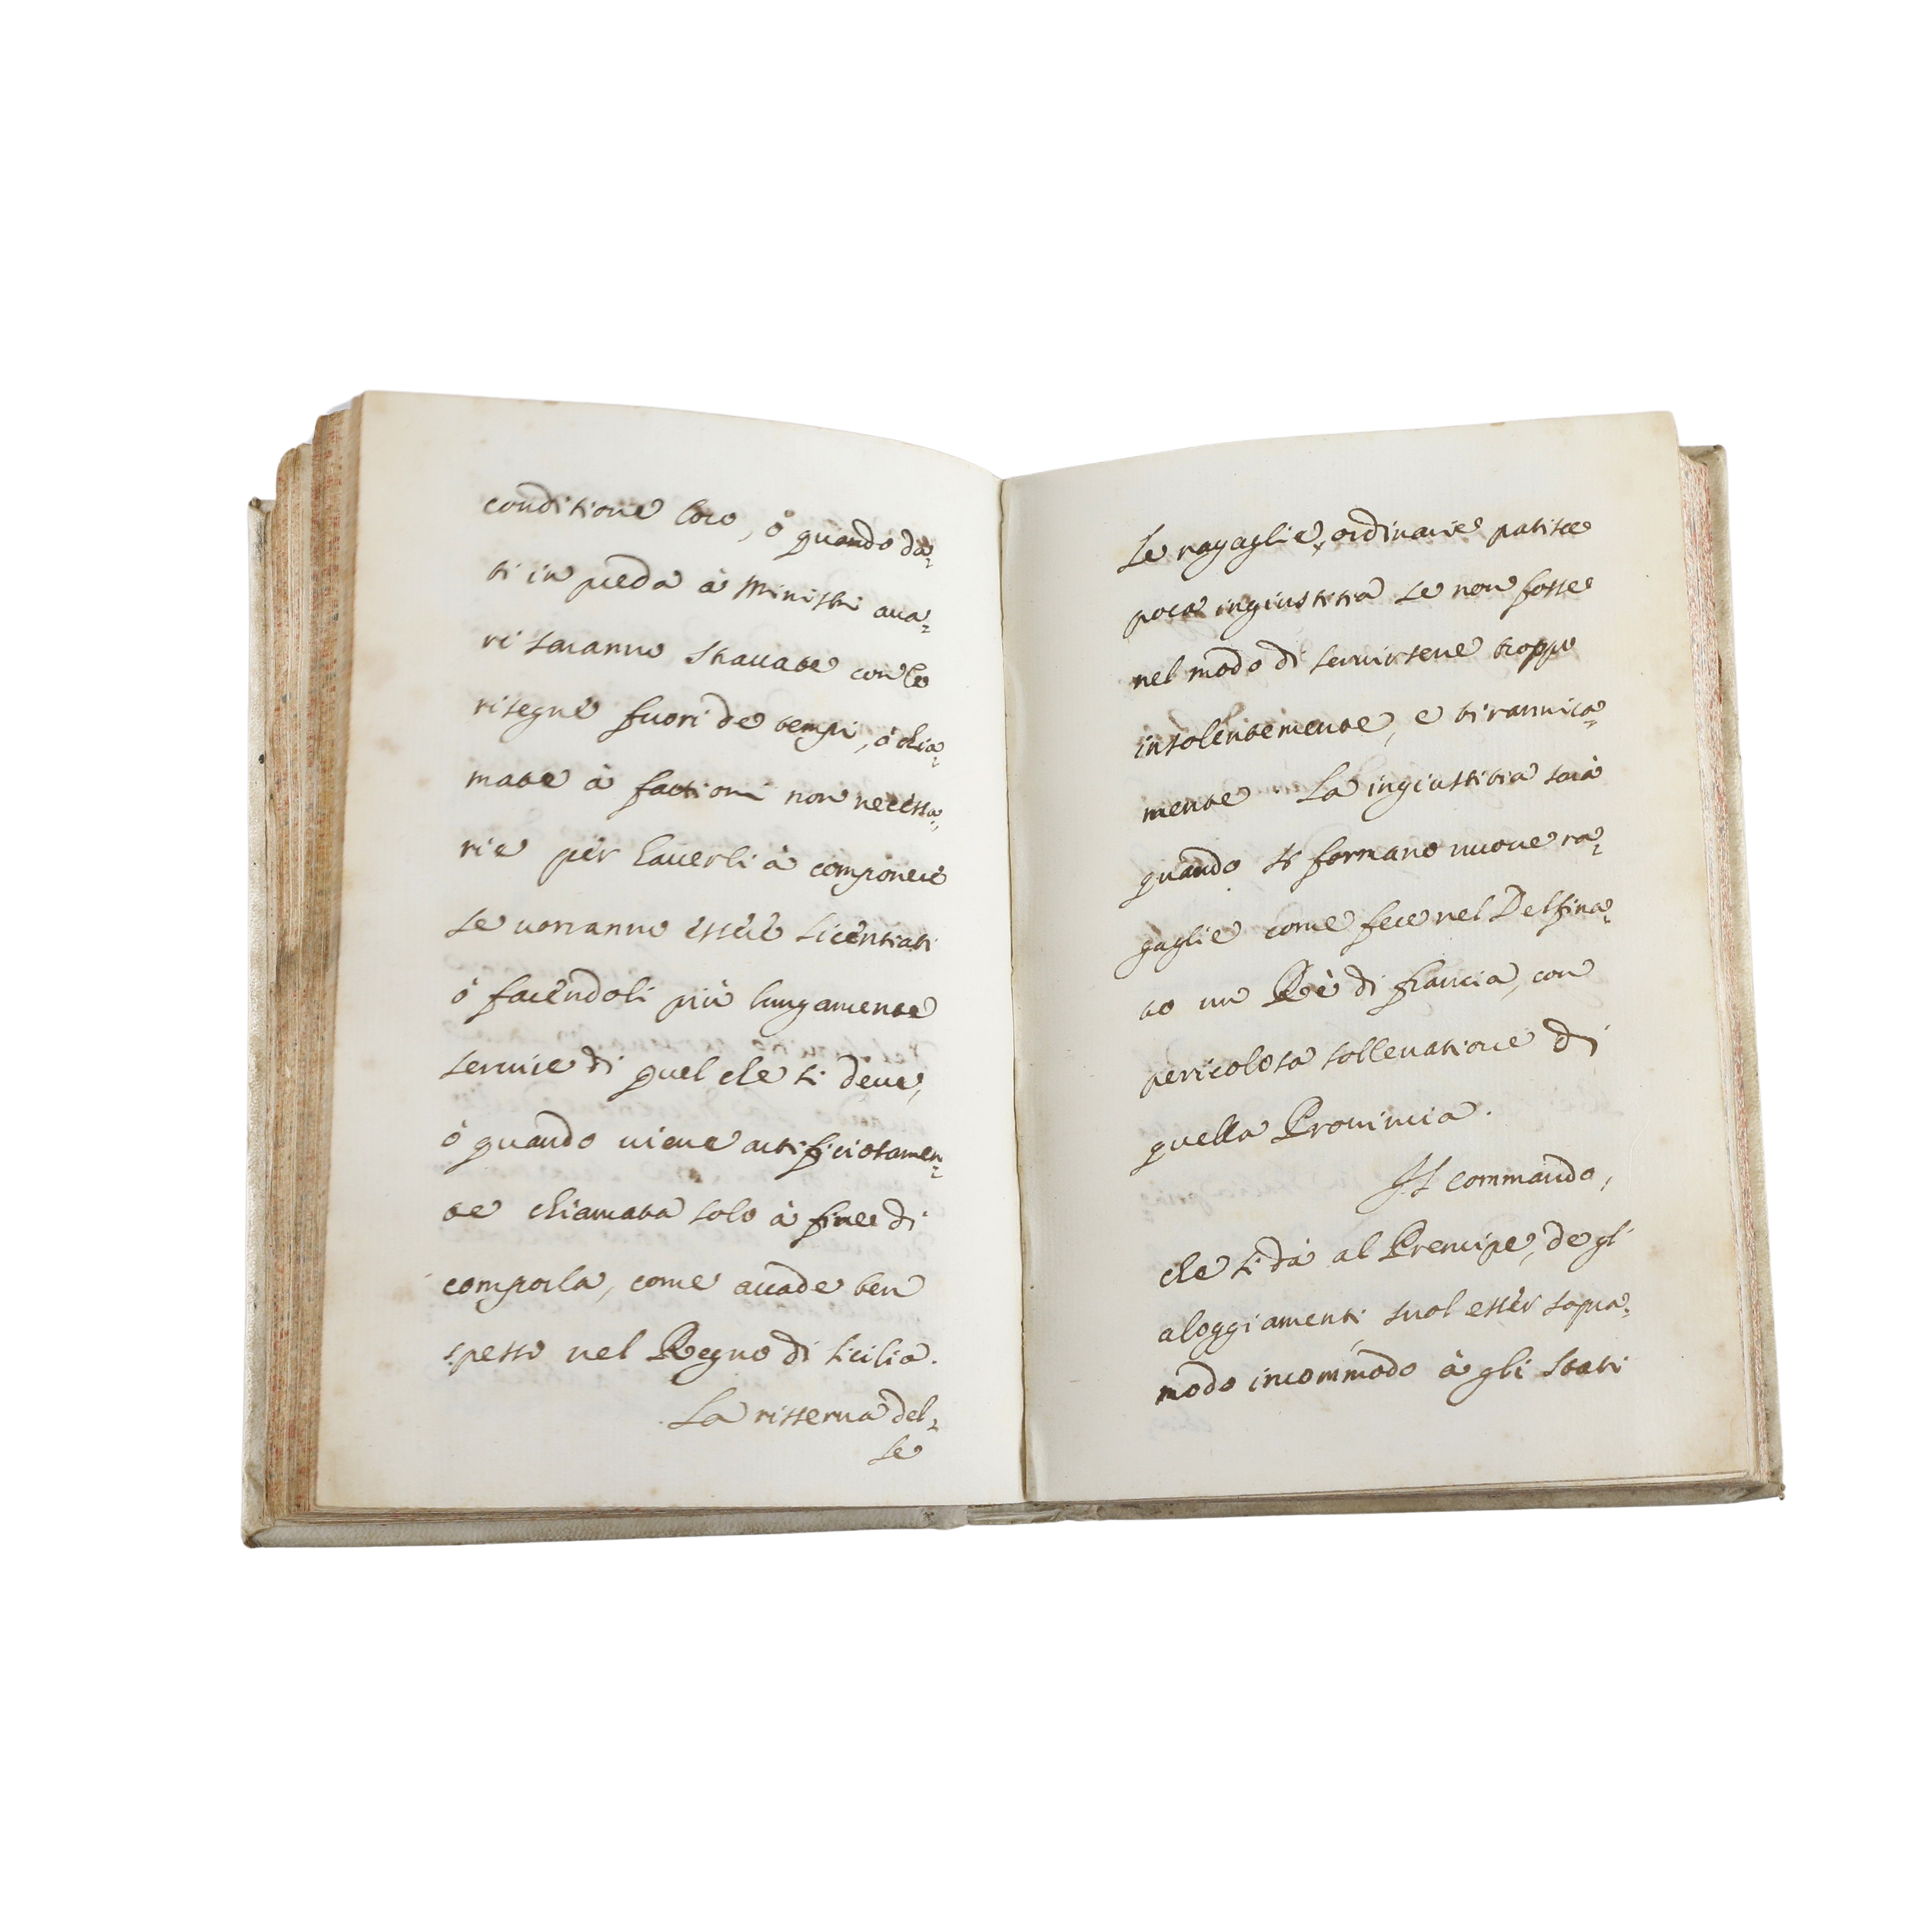 conditione loro, ò quando da=
ti in preda à Ministri aua=
ri saranno stracate con le
risegne fuori de tempi, ò chia=
mate à fattioni non necessa=
rie per hauerli à componere
se uorranno essere licentiati
ò facendoli più lungamente
seruire di quel che si deue,
ò quando uiene artificiosamen=
te chiamata solo à fine di
comporla, come accade ben
spesso nel Regno di Sicilia.
La risserua del=
le
Le regaglie, ordinarie patisce
poca ingiustitia se non fosse
nel modo di seruirsene troppo
insolentemente, e tirannica=
mente La ingiustitia sarà
quando si formano nuoue ra=
gaglie come fece nel Delfina=
to un Rè di Francia, con
pericolosa solleuatione di
quella Prouincia.
Il commando,
che si dà al Prencipe, de gl'
aloggiamenti suol esser sopra=
modo incommodo à gli Stati